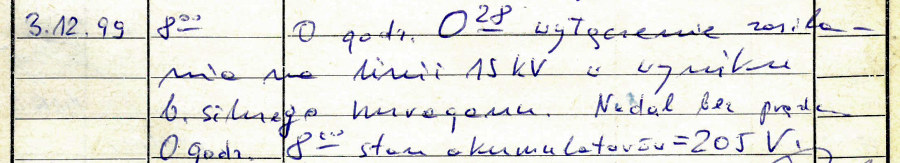 3.12.99 8⁰⁰ O godz. 0²⁸ wyłączenie zasila-
nia na linii 15 kV w wyniku
b. silnego huraganu. Nadal bez prądu
O godz. 8⁰⁰ stan akumulatorów = 205 V.